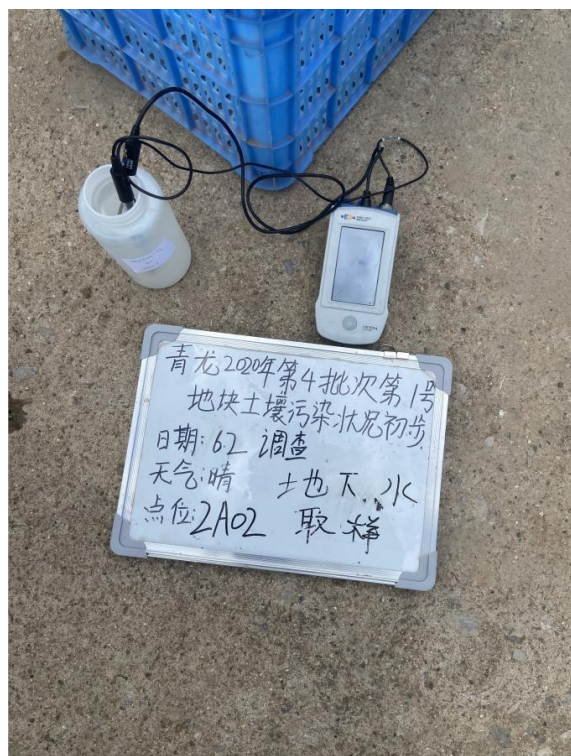 青龙2020年第4批次第1号
地块土壤污染状况初步
日期:6.2 调查
天气:晴 地下水
点位:2A02 取样